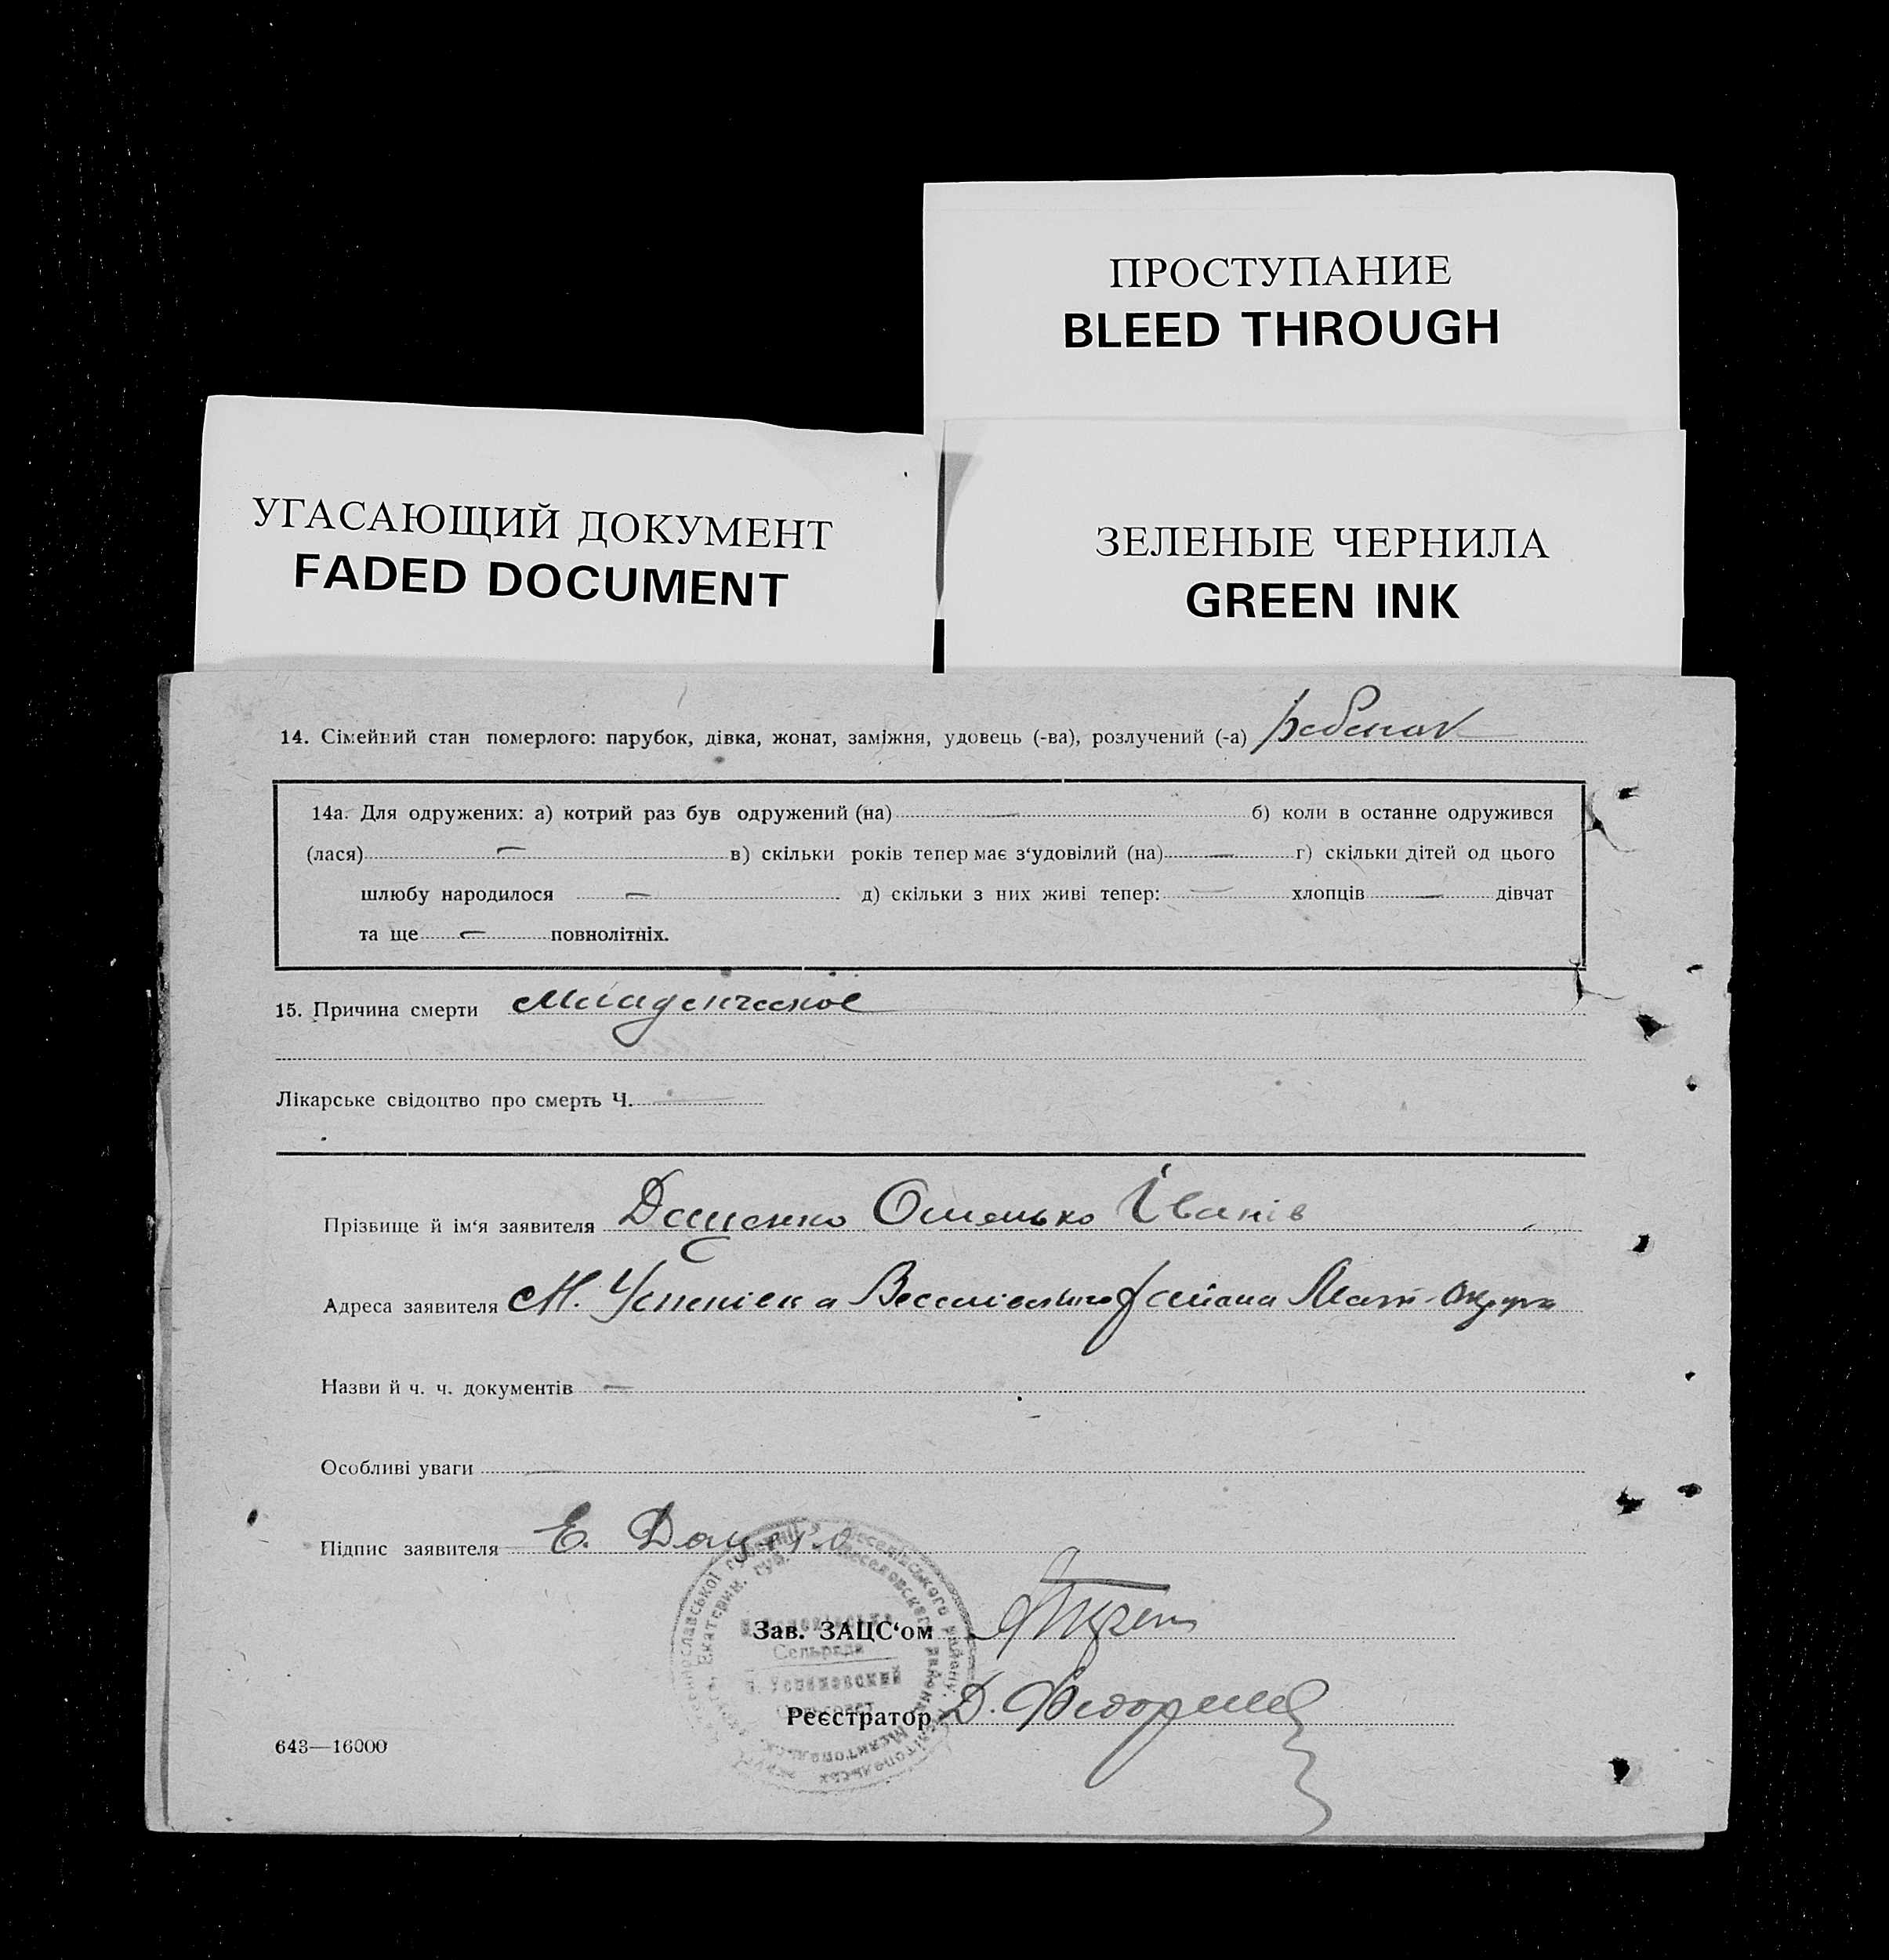 ПРОСТУПАНИЕ
BLEED THROUGH
УГАСАЮЩИЙ ДОКУМЕНТ
FADED DOCUMENT
ЗЕЛЕНЫЕ ЧЕРНИЛА
GREEN INK
14. Сімейний стан померлого: парубок, дівка, жонат, заміжня, удовець (-ва), розлучений (-а) ребенок
14а. Для одружених: а) котрий раз був одружений (на) — б) коли в останне одружився
(лася) — в) скільки років тепер має з‘удовілий (на) — г) скільки дітей од цього
шлюбу народилося — д) скільки з них живі тепер: — хлопців — дівчат
та ще — повнолітніх.
15. Причина смерти Младенческое
Лікарське свідоцтво про смерть Ч. —
Прізвище й ім‘я заявителя Даценко Омелько Іванів
Адреса заявителя М. Успенівка Веселівського району Меліт. Округи
Назви й ч. ч. документів —
Особливі уваги —
Підпис заявителя Е. Даценко
Зав. ЗАЦС‘ом
Сельрада
Реєстратор Д.
643—16000